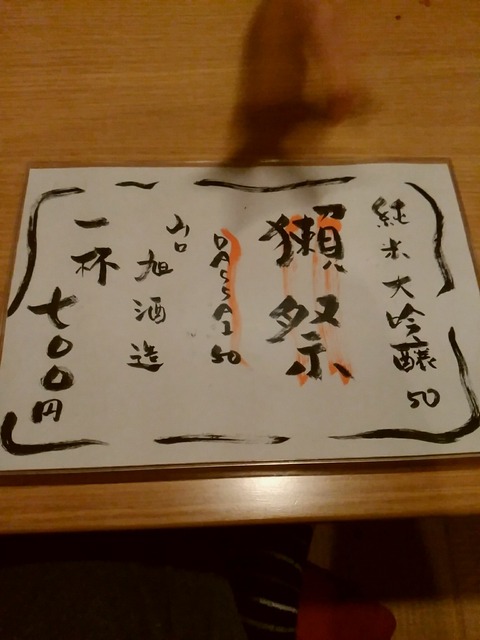 純米大吟醸50
獺祭
DASSAI 50
山口
旭酒造
一杯
七〇〇円